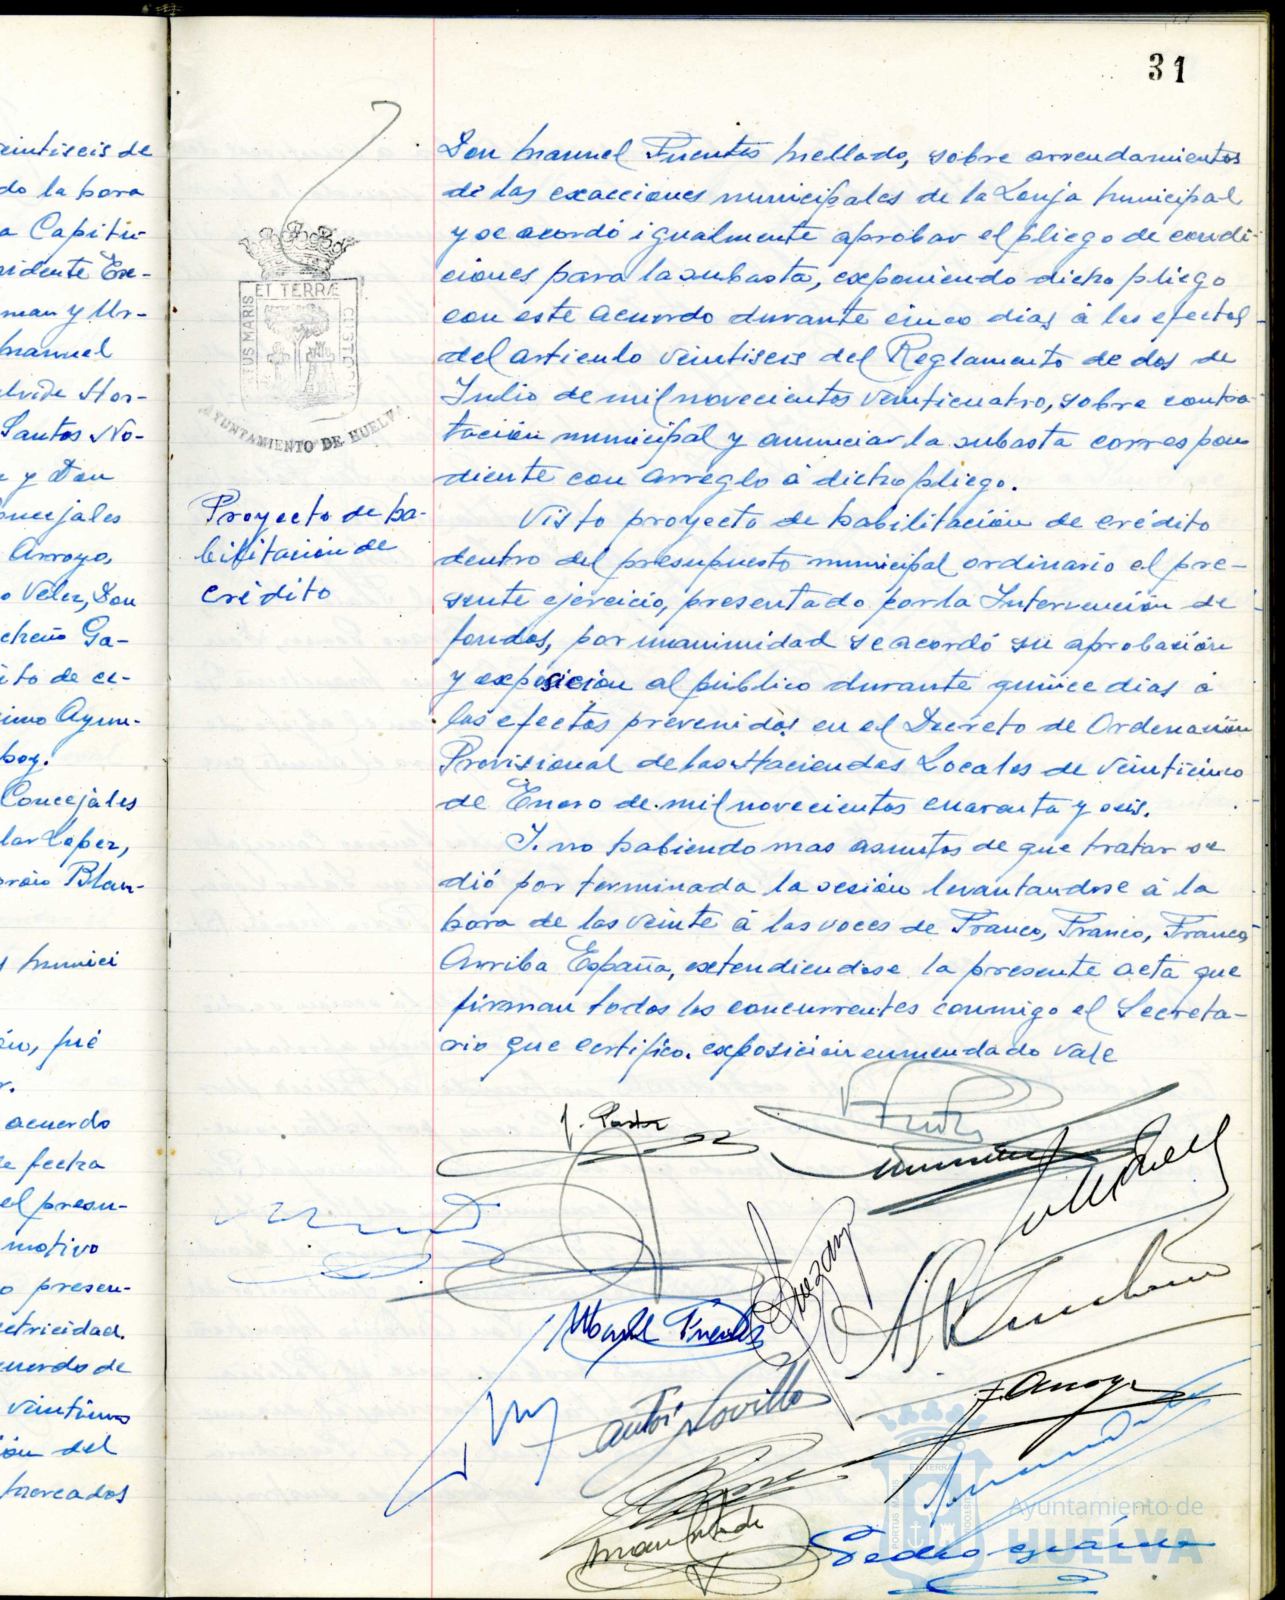 31
eintiseis de
do la hora
a Capitu-
sidente Ex-
man y Ur-
Manuel
lvide Hor-
Santos No-
y Don
oncejales
Arroyo,
o Velez, Don
cheño Ga-
ito de ce-
simo Ayun-
hoy.
Concejales
lar Lopez,
Blan-
s munici
ón, fué
r.
acuerdo
de fecha
el presu-
motivo
o presen-
ectricidad.
cuerdo de
veintiuno
ión del
Mercados
PORTUS MARIS ET TERRÆ CUSTODIA
AYUNTAMIENTO DE HUELVA
Proyecto de ha-
bilitación de
crédito
Don Manuel Fuentes Mellado, sobre arrendamientos
de las exacciones municipales de la Lonja Municipal
y se acordó igualmente aprobar el pliego de condi-
ciones para la subasta, exponiendo dicho pliego
con este acuerdo durante cinco dias á los efectos
del articulo veintiseis del Reglamento de dos de
Julio de mil novecientos veinticuatro, sobre contra-
tación municipal y anunciar la subasta correspon
diente con arreglo á dicho pliego.
Visto proyecto de habilitación de crédito
dentro del presupuesto municipal ordinario el pre-
sente ejercicio, presentado por la Intervención de
fondos, por unanimidad se acordó su aprobación
y exposición al público durante quince dias á
los efectos prevenidos en el Decreto de Ordenación
Provisional de las Haciendas Locales de veinticinco
de Enero de mil novecientos cuarenta y seis.
Y. no habiendo mas asuntos de que tratar se
dió por terminada la sesión levantandose á la
hora de las veinte á las voces de Franco, Franco, Franco,
Arriba España, extendiendose la presente acta que
firman todos los concurrentes conmigo el Secreta-
rio que certifico. exposición enmendado vale
Manuel Fuentes
Suezary
Antº Novillo
F. Arroyo
Pedro García
PORTUS MARIS ET TERRÆ CUSTODIA
Ayuntamiento de
HUELVA